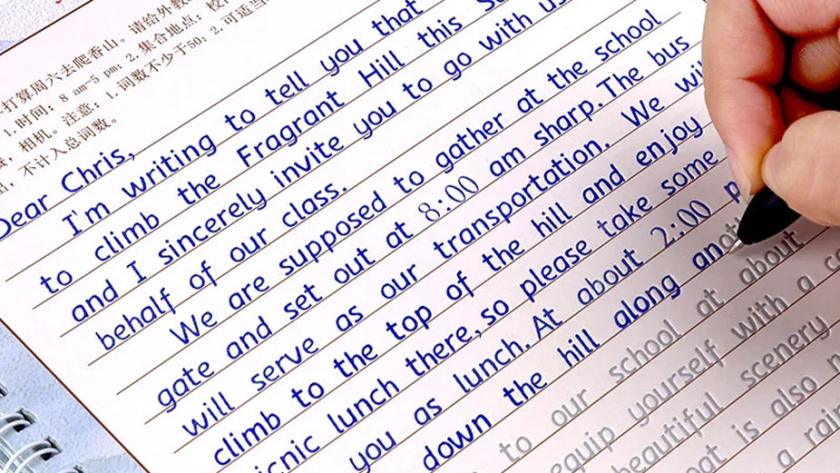 打算周六去爬香山。请给外教
1.时间：8 am-5 pm；2.集合地点：校
相机。注意：1.词数不少于50；2.可适当
不计入总词数。
Dear Chris,
I'm writing to tell you that
to climb the Fragrant Hill this
and I sincerely invite you to go with us
behalf of our class.
We are supposed to gather at the school
gate and set out at 8:00 am sharp. The bus
will serve as our transportation. We
climb to the top of the hill and enjoy
lunch there, so please take some
you as lunch. At about 2:00
down the hill along
to our school at about
equip yourself with a
scenery
is also